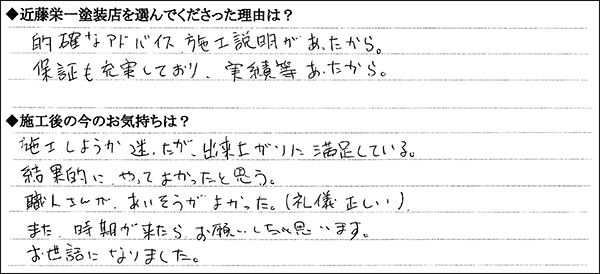 ◆近藤栄一塗装店を選んでくださった理由は？
的確なアドバイス 施工説明があったから。
保証も充実しており、実績等あったから。
◆施工後の今のお気持ちは？
施工しようか迷ったが、出来上がりに満足している。
結果的に、やってよかったと思う。
職人さんが、あいそうがよかった。(礼儀正しい)
また、時期が来たら、お願いしたい思います。
お世話になりました。